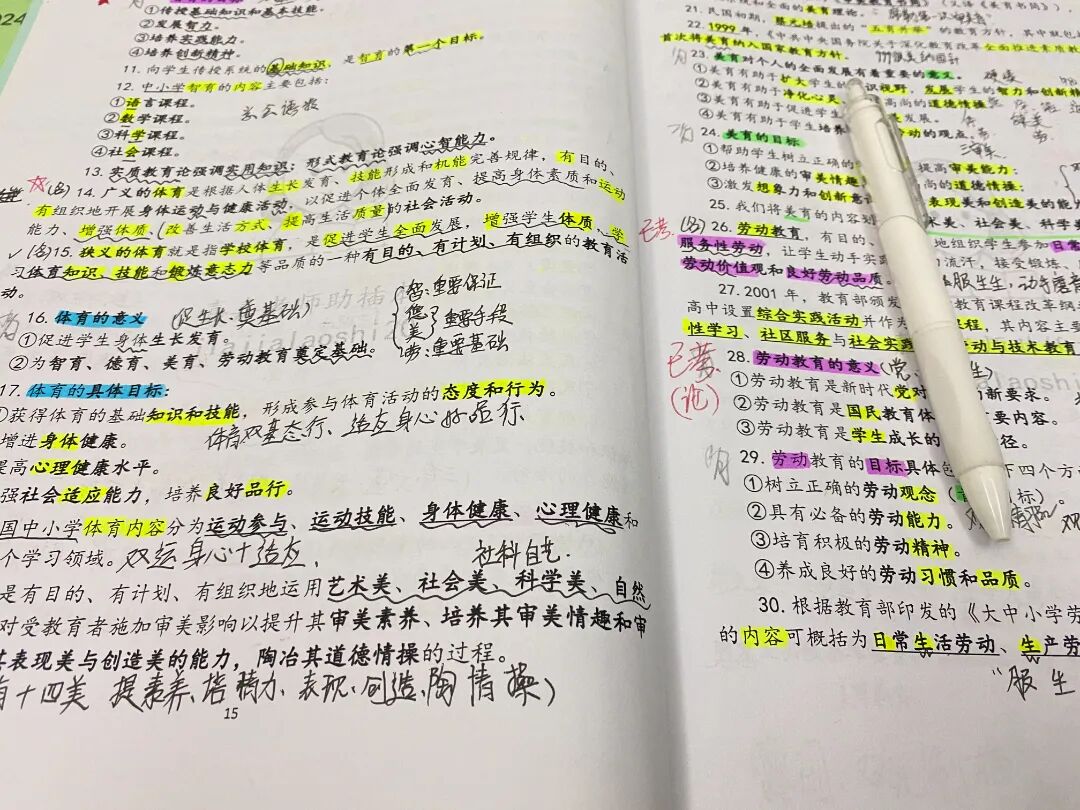 2024
①传授基础知识和基本技能。
②发展智力。
③培养实践能力。
④培养创新精神。
11. 向学生传授系统的基础知识，是智育的第一个目标。
12. 中小学智育的内容主要包括：
①语言课程。
②数学课程。
③科学课程。
④社会课程。
13. 实质教育论强调实用知识；形式教育论强调心智能力。
(名) 14. 广义的体育是根据人体生长发育、技能形成和机能完善规律，有目的、
有组织地开展身体运动与健康活动，以促进个体全面发育、提高身体素质和运动
能力、增强体质、改善生活方式、提高生活质量的社会活动。
(名) 15. 狭义的体育就是指学校体育，是促进学生全面发展，增强学生体质、学
习体育知识、技能和锻炼意志力等品质的一种有目的、有计划、有组织的教育活
动。
16. 体育的意义 (促生长、奠基础)
①促进学生身体生长发育。
②为智育、德育、美育、劳动教育奠定基础。
智：重要保证
德
美 重要手段
劳：重要基础
17. 体育的具体目标：
①获得体育的基础知识和技能，形成参与体育活动的态度和行为。
增进身体健康。
提高心理健康水平。
强社会适应能力，培养良好品行。
国中小学体育内容分为运动参与、运动技能、身体健康、心理健康和
个学习领域。 双运身心+适应
社科自艺
是有目的、有计划、有组织地运用艺术美、社会美、科学美、自然
对受教育者施加审美影响以提升其审美素养、培养其审美情趣和审
其表现美与创造美的能力，陶冶其道德情操的过程。
十四美 提素养、培精力、表现、创造、陶情操)
15
21. 民国初期，蔡元培提出的"五育并举"的教育方针，其中就包
22. 1999 年，《中共中央国务院关于深化教育改革全面推进素质教
首次将美育纳入国家教育方针。
23. 美育对个人的全面发展有着重要的意义。
①美育有助于扩大学生的知识视野，发展学生的智力和创新精
②美育有助于净化心灵 高尚的道德情操
③美育有助于促进学生 发展。
④美育有助于学生培养 劳动的观点。
24. 美育的目标
①帮助学生树立正确的 提高审美能力；
②培养健康的审美情趣 高的道德情操；
③激发想象力和创新意 表现美和创造美的能
25. 我们将美育的内容划 术美、社会美、科学美
已考 (名) 26. 劳动教育，有目的、 地组织学生参加日常
服务性劳动，让学生动手实践 流汗，接受锻炼、
劳动价值观和良好劳动品质。
27. 2001 年，教育部颁发 教育课程改革纲
高中设置综合实践活动并作为 课程，其内容主要
性学习、社区服务与社会实践 动与技术教育
已考 (论) 28. 劳动教育的意义 (党、 生)
①劳动教育是新时代党对 新要求。
②劳动教育是国民教育体 要内容。
③劳动教育是学生成长的 径。
29. 劳动教育的目标具体包 下四个方
①树立正确的劳动观念 标)。
②具有必备的劳动能力。
③培育积极的劳动精神。
④养成良好的劳动习惯和品质。
30. 根据教育部印发的《大中小学劳
的内容可概括为日常生活劳动、生产劳
"服生